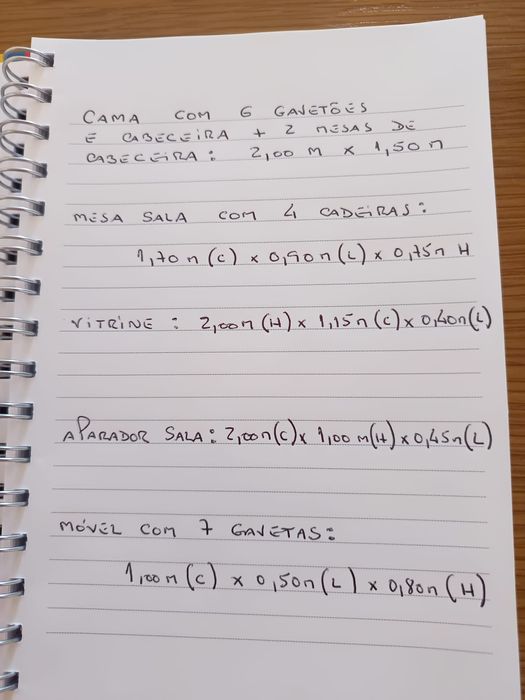 CAMA COM 6 GAVETÕES
E CABECEIRA + 2 MESAS DE
CABECEIRA: 2,00 M x 1,50 M
MESA SALA COM 4 CADEIRAS:
1,70 m (C) x 0,90 m (L) x 0,75 m H
VITRINE : 2,00 m (H) x 1,15 m (C) x 0,40 m (L)
APARADOR SALA: 2,00 m (C) x 1,00 m (H) x 0,45 m (L)
MÓVEL COM 7 GAVETAS:
1,00 m (C) x 0,50 m (L) x 0,80 m (H)